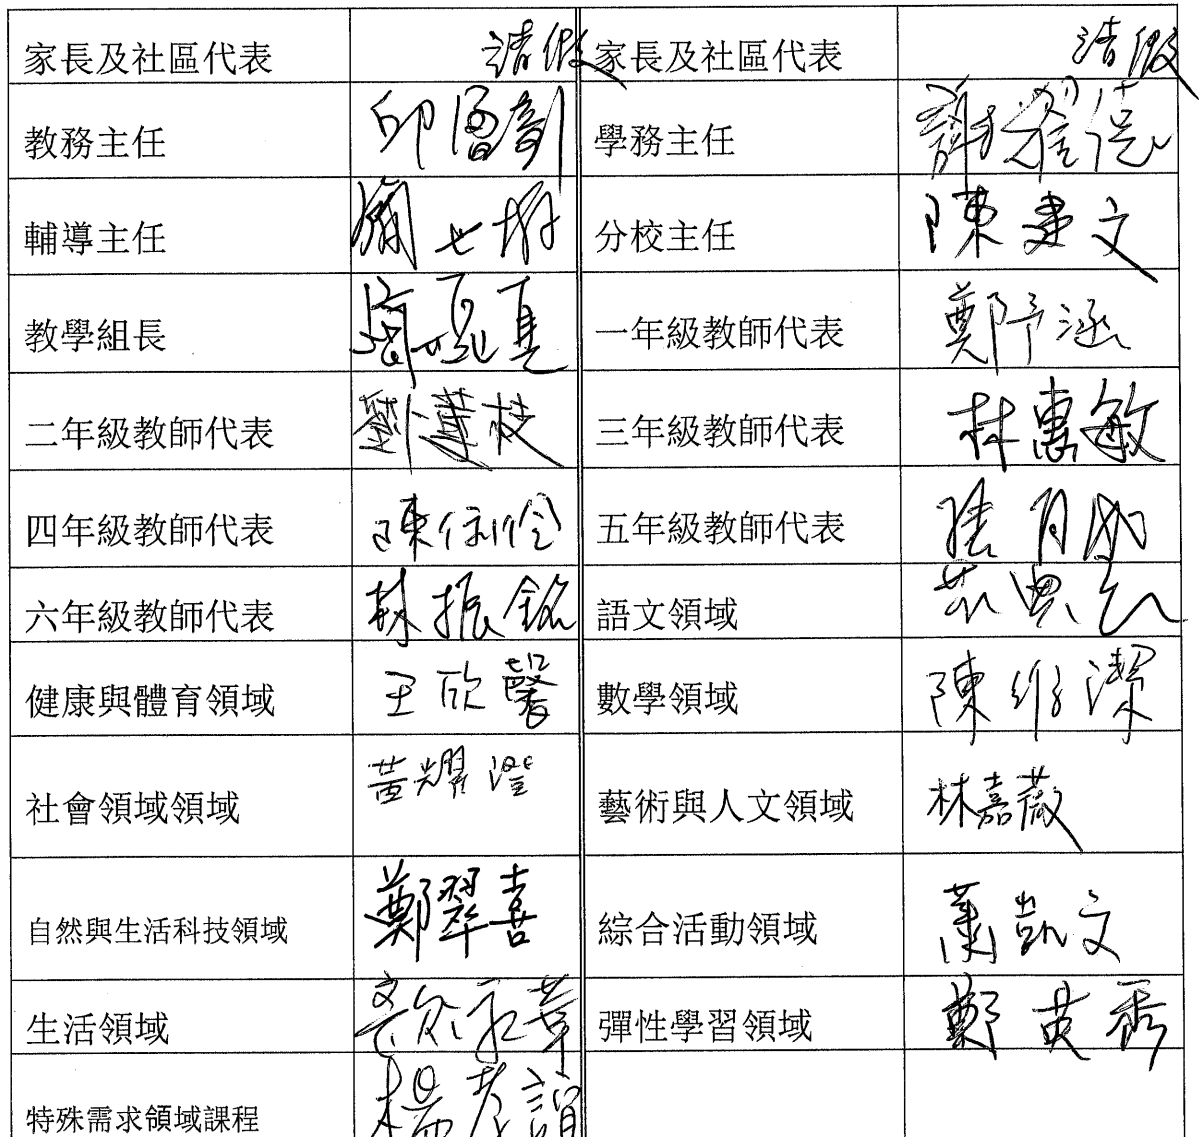 家長及社區代表 請假 家長及社區代表 請假
教務主任 邱 學務主任 謝
輔導主任 分校主任 陳建文
教學組長 一年級教師代表 鄭予涵
二年級教師代表 劉 枝 三年級教師代表 林惠敏
四年級教師代表 陳 伶 五年級教師代表 月
六年級教師代表 林振銘 語文領域
健康與體育領域 王欣馨 數學領域 陳維潔
社會領域領域 黃耀瀅 藝術與人文領域 林嘉薇
自然與生活科技領域 鄭翠喜 綜合活動領域 蕭凱文
生活領域 彈性學習領域 鄭英秀
特殊需求領域課程 楊